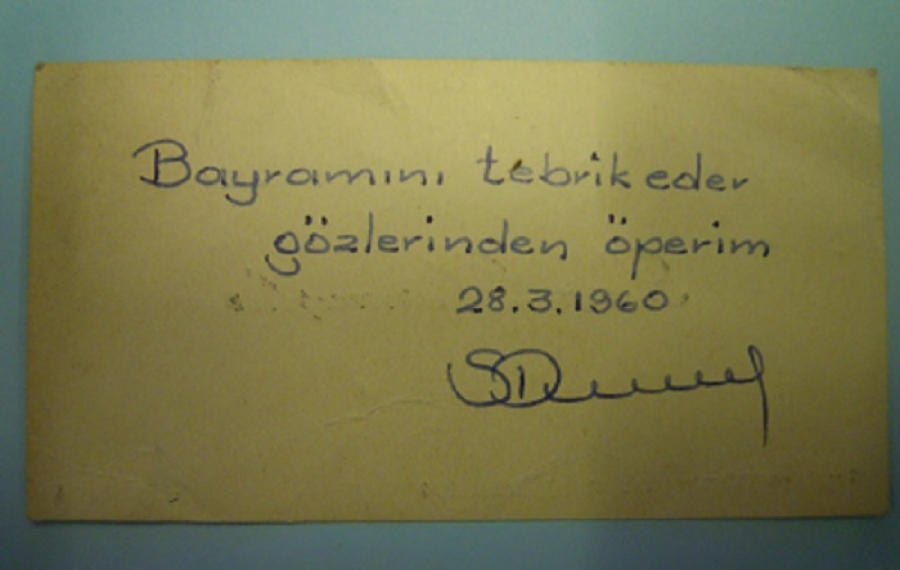 Bayramını tebrik eder
gözlerinden öperim
28.3.1960